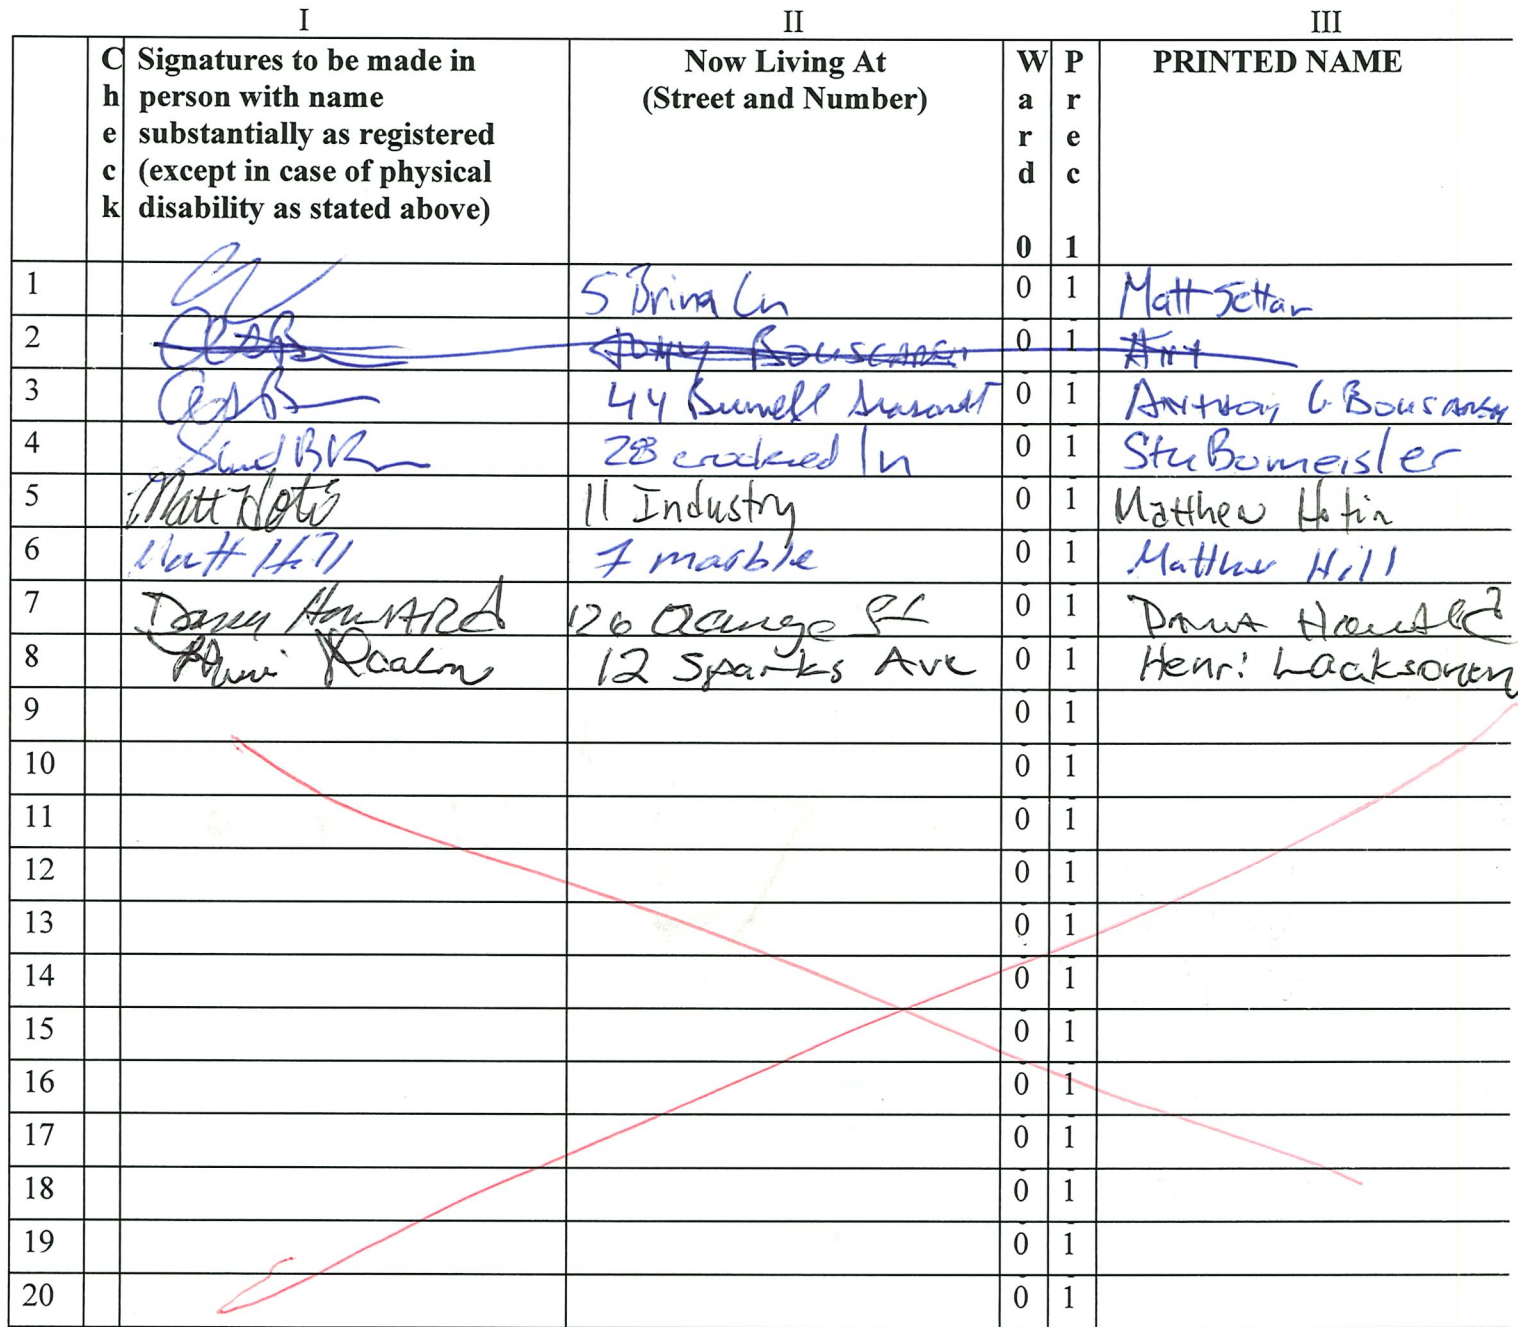 I II III
Check Signatures to be made in person with name substantially as registered (except in case of physical disability as stated above) Now Living At (Street and Number) Ward 0 Prec 1 PRINTED NAME
1 5 Brina Ln 0 1 Matt
2 Tony 0 1
3 44 0 1 Anthony G
4 28 ln 0 1 Stu Bomeisler
5 Matt 11 Industry 0 1 Matthew
6 Matt Hill 7 marble 0 1 Matthew Hill
7 Howard 126 Orange St 0 1
8 12 Sparks Ave 0 1 Henri Lacksonen
9 0 1
10 0 1
11 0 1
12 0 1
13 0 1
14 0 1
15 0 1
16 0 1
17 0 1
18 0 1
19 0 1
20 0 1